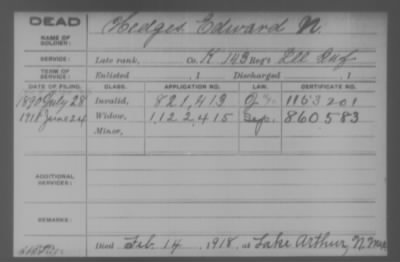 DEAD
NAME OF SOLDIER: Hedges, Edward N.
SERVICE: Late rank, Co. K 143 Reg't Ill Inf
TERM OF SERVICE: Enlisted , 1 Discharged , 1
DATE OF FILING. CLASS. APPLICATION NO. LAW. CERTIFICATE NO.
1890 July 28 Invalid, 821,413 1163201
1918 June 24 Widow, 1,122,415 860583
Minor,
ADDITIONAL SERVICES:
REMARKS:
Died Feb. 14, 1918, at Lake Arthur, N Mex